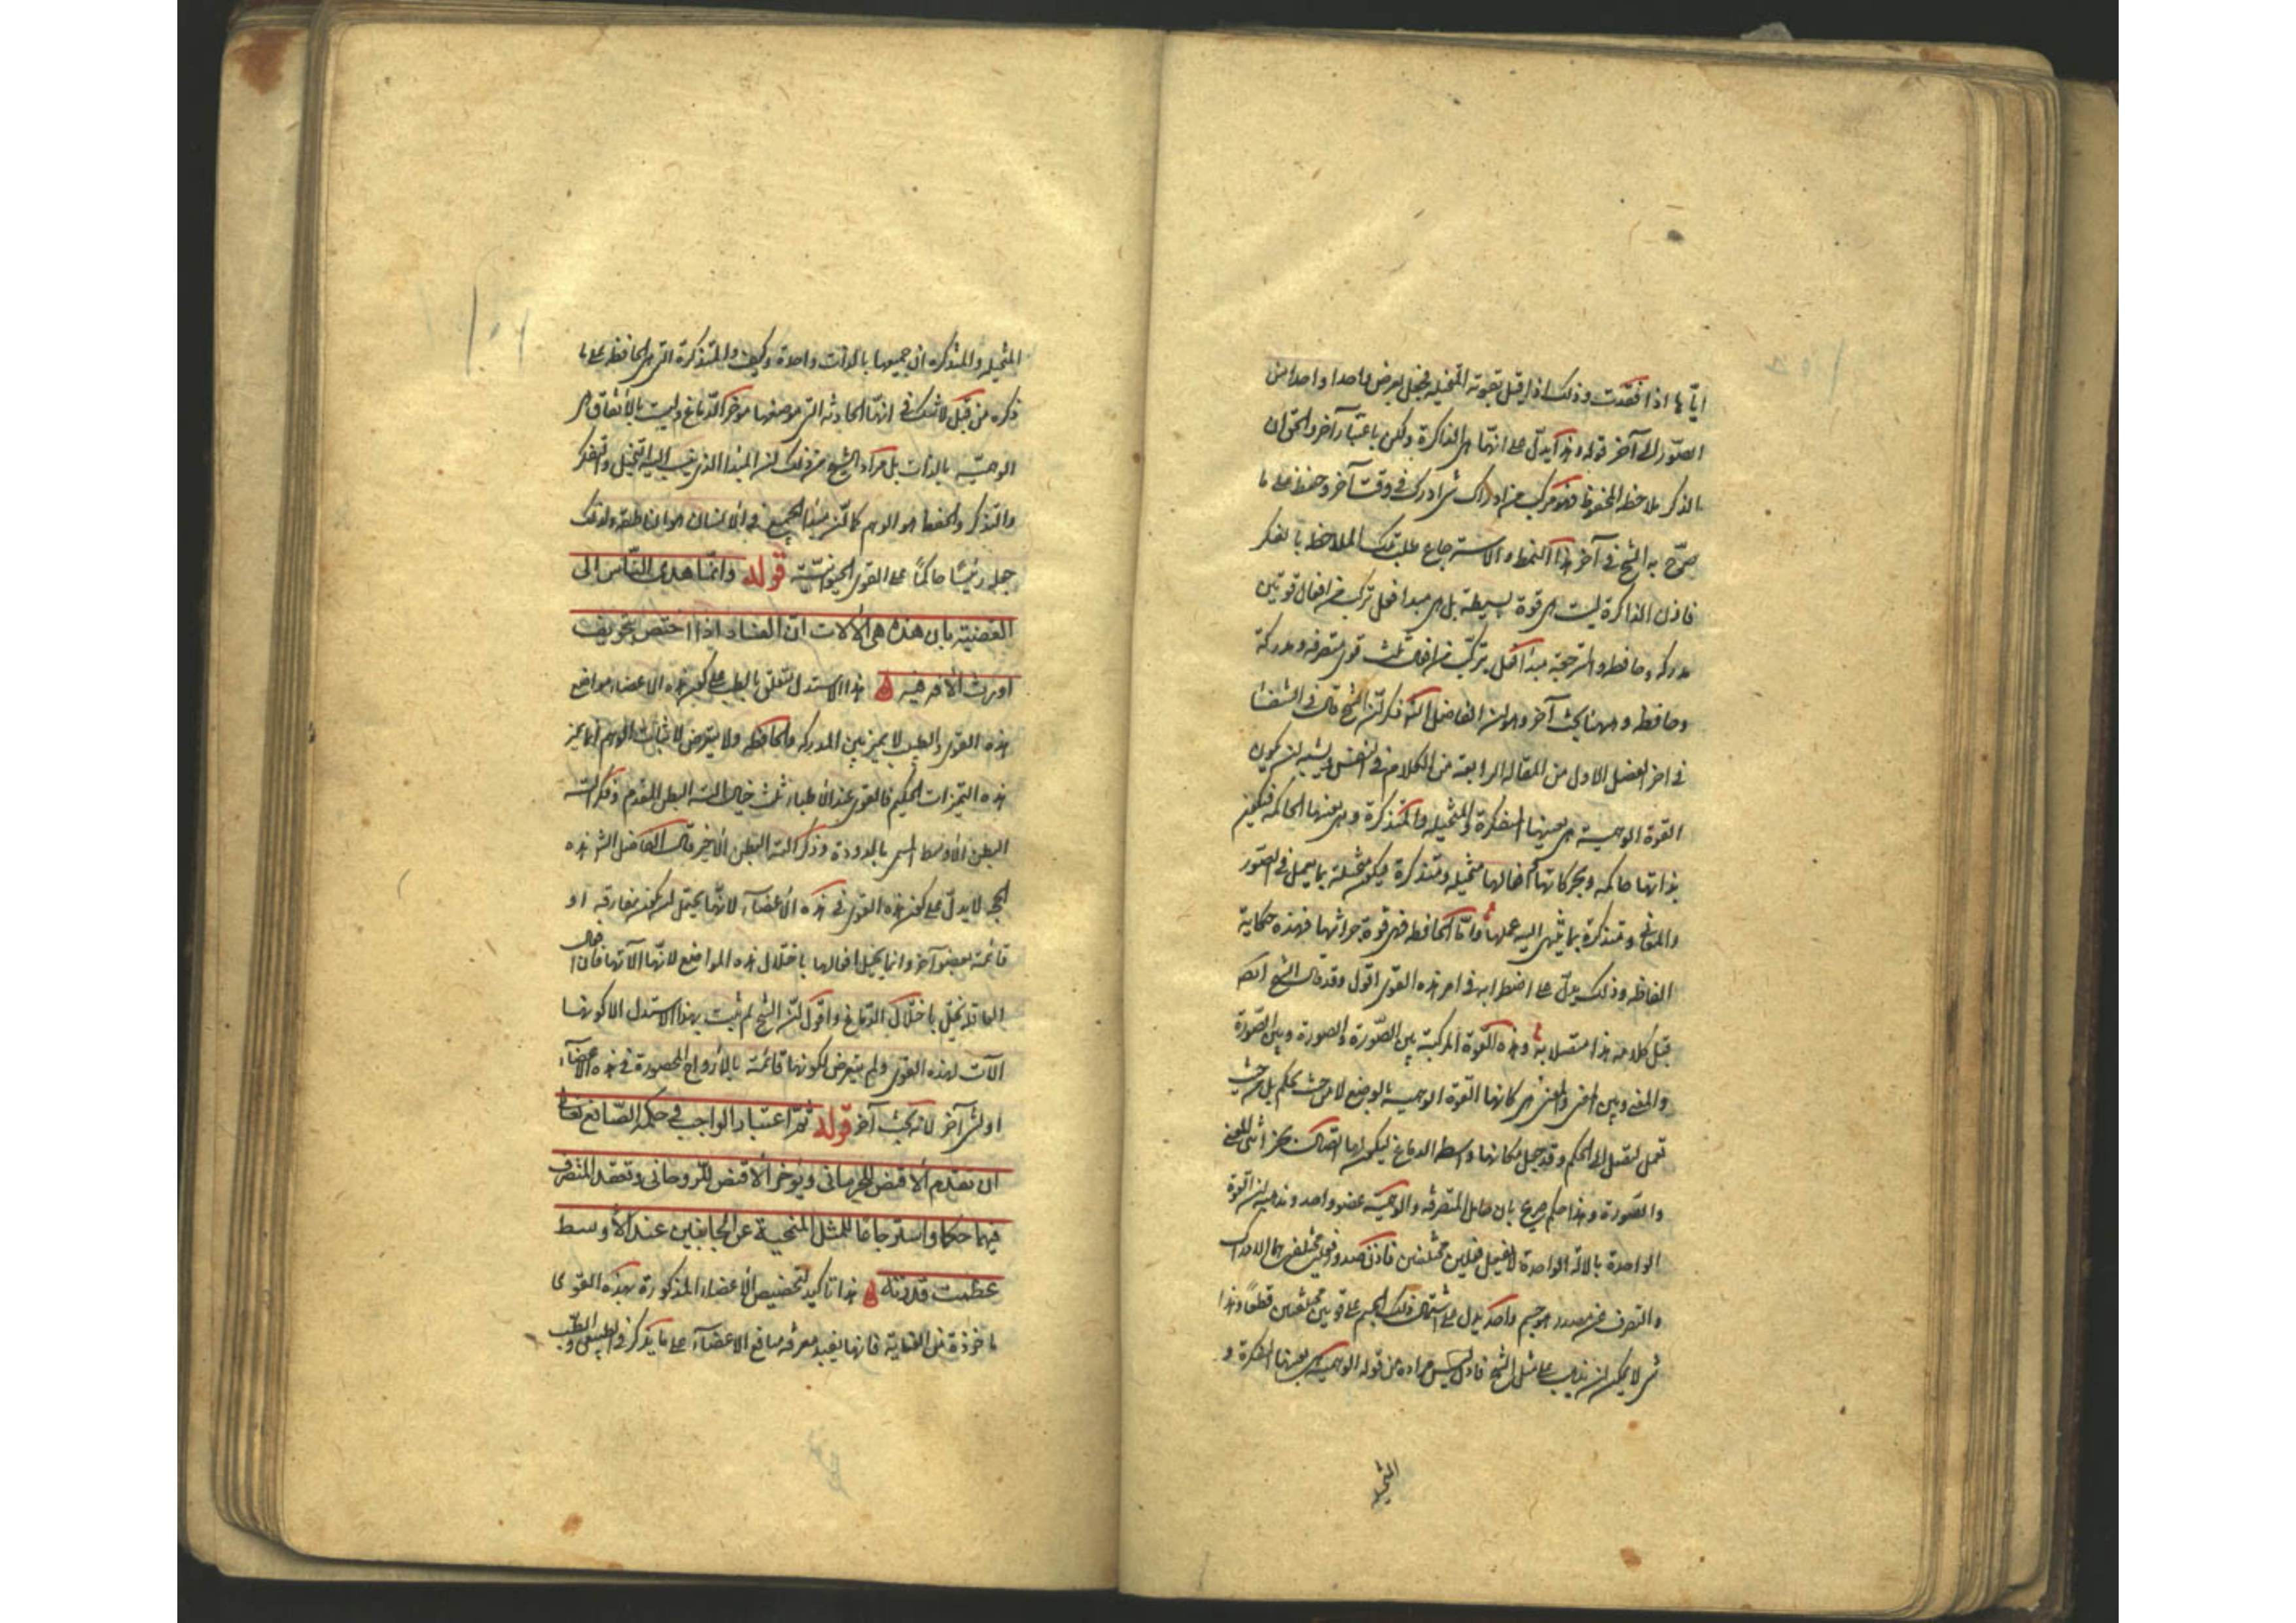 ايّاها اذا فقدت وذلك اذا اقبل بقوته المتخيله فجعل يعرض واحدا واحدا من
الصّور الى آخر قوله وهذا يدلّ على انّها هى الذاكرة ولكن باعتبار آخر والحق ان
الذكر ملاحظة المحفوظ فهو مركب من ادراك شئ ادرك فى وقت آخر وحفظ على ما
صرّح به الشيخ فى آخر هذا النمط والاسترجاع طلب تلك الملاحظة بالفكر
فاذن الذاكرة ليست هى قوة بسيطة بل هى مبدا فعل تركب من افعال قوتين
مدركة وحافظه والمسترجعة مبدا فعل يتركّب من افعال ثلث قوى متصرفه ومدركة
وحافظه وههنا بحث آخر وهو ان الفاضل الشه ذكر ان الشيخ قال فى الشفا
فى اخر الفصل الاول من المقاله الرابعة من الكلام فى النفس يشبه ان يكون
القوة الوهمية هى بعينها المفكرة والمتخيله والمتذكرة وهى بعينها الحاكمه فيكون
بذاتها حاكمه وبحركاتها وافعالها متخيله ومتذكرة فيكون متخيلة بما يعمل فى الصّور
والمعانى ومتذكرة بما ينتهى اليه عملها وامّا الحافظه فهى قوة خزانتها فهذه حكاية
الفاظه وذلك يدلّ على اضطرابه فى امر هذه القوى اقول وقد قال الشيخ ايضا
قبل كلامه هذا متصلا به وهذه القوة المركبة بين الصّورة والصورة وبين الصّورة
والمعنى وبين المعنى والمعنى هى كانها القوة الوهمية بالوضع لا من حيث يحكم بل من حيث
تعمل لتصل الى الحكم وقد جعل مكانها وسط الدماغ ليكون لها اتصال بخزانتى المعنى
والصّورة وهذا حكم صريح بان حامل المتصرفه والوهميّة عضو واحد ومذهبه ان القوة
الواحدة بالآلة الواحدة لا تفعل فعلين مختلفين فاذن صدور فعلين مختلفين هما الادراك
والتصرف عن مصدر هو جسم واحد يدل على اشتمال ذلك الجسم على قوتين مختلفتين قطعاً وهذا
شئ لا يمكن ان يذهب على مثل الشيخ فاذن ليس مراده من قوله الوهمية هى بعينها المفكرة و
المتخيله
المتخيله والمتذكره ان جميعها بالذات واحدة وكيف والمتذكرة التى هى الحافظه على ما
ذكره من قبل لا شك فى انها الحادثه التى موضعها موخر الدّماغ وليست بالاتفاق هى
الوهميّه بالذات بل مراد الشيخ من ذلك ان المبدا الذى ينسب اليه التخيل والتفكر
والتذكر والحفظ هو الوهم كما ان مبدا الجميع فى الانسان هو الناطقه ولذلك
جعله رئيسًا حاكمًا على القوى الحيوانيّة قوله وانّما هدى النّاس الى
القضيّة بان هذه هى الآلات انّ الفساد اذا اختص بتجويف
اورث الآفة فيه هذا الاستدل يتعلق بالطب على كون هذه الاعضاء مواضع
هذه القوى والطبيب لا يميز بين المدركه والحافظه ولا يتعرض لاثبات الوهم انما يميز
هذه التميزات الحكيم فالقوى عند الاطباء ثلث خيال آلته البطن المقدم وفكر آلته
البطن الاوسط المسمى بالدودة وذكر آلته البطن الاخير قال الفاضل الشه هذه
الحجه لا يدلّ على كون هذه القوى فى هذه الاعضاء لانها يحتمل ان تكون مفارقه او
قائمة بعضو آخر وانما يختل افعالها باختلال هذه المواضع لانّها آلاتها فان افعال
العاقله تختل باختلال الدّماغ واقول ان الشيخ لم يثبت بهذا الاستدل الا كونها
آلات لهذه القوى ولم يتعرض لكونها قائمة بالارواح المحصورة فى هذه الاعضاء
او لشئ آخر لانه بحث آخر قوله ثمّ اعتبار الواجب فى حكمة الصّانع تعالى
ان يقدم الاقنص للجرمانى ويؤخر الاقنص للروحانى ويقعد المتصرف
فيهما حكما واسترجاعًا للمثل المنمحية عن الجانبين عند الاوسط
عظمت قدرته هذا تاكيد لتخصيص الاعضاء المذكورة بهذه القوى
ماخوذة من الغاية فانها يفيد معرفه منافع الاعضاء على ما يذكر فى الطبيعى والطب